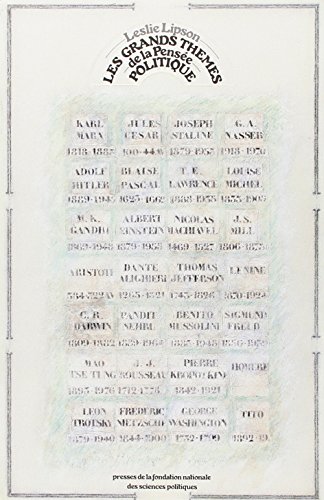 Leslie Lipson
LES GRANDS THEMES
de la Pensée
POLITIQUE
KARL JULES JOSEPH G.A.
MARX CESAR STALINE NASSER
1818-1883 1879-1953 1918-1970
ADOLF BLAISE T. E. LOUISE
HITLER PASCAL LAWRENCE MICHEL
1889-1945 1623-1662 1888-1935
M. K. ALBERT NICOLAS J.S.
GANDHI EINSTEIN MACHIAVEL MILL
1869-1948 1879-1955 1469-1527 1806-1873
ARISTOTE DANTE THOMAS LENINE
ALIGHIERI JEFFERSON
1265-1321 1743-1826 1870-1924
C. R. PANDIT BENITO SIGMUND
DARWIN NEHRU MUSSOLINI FREUD
1809-1882 1889-1964 1883-1945 1856-1939
MAO J. J. PIERRE HOMERE
TSE TUNG ROUSSEAU KROPOTKINE
1712-1778 1842-1921
LEON FREDERIC GEORGE TITO
TROTSKY NIETZSCHE WASHINGTON
1879-1940 1844-1900 1732-1799
presses de la fondation nationale
des sciences politiques